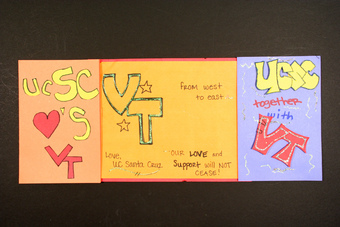 UCSC
♥'S
VT
VT
from west
to east...
Love,
UC Santa Cruz
"OUR LOVE and
Support will NOT
CEASE!"
UCSC
together
with
VT